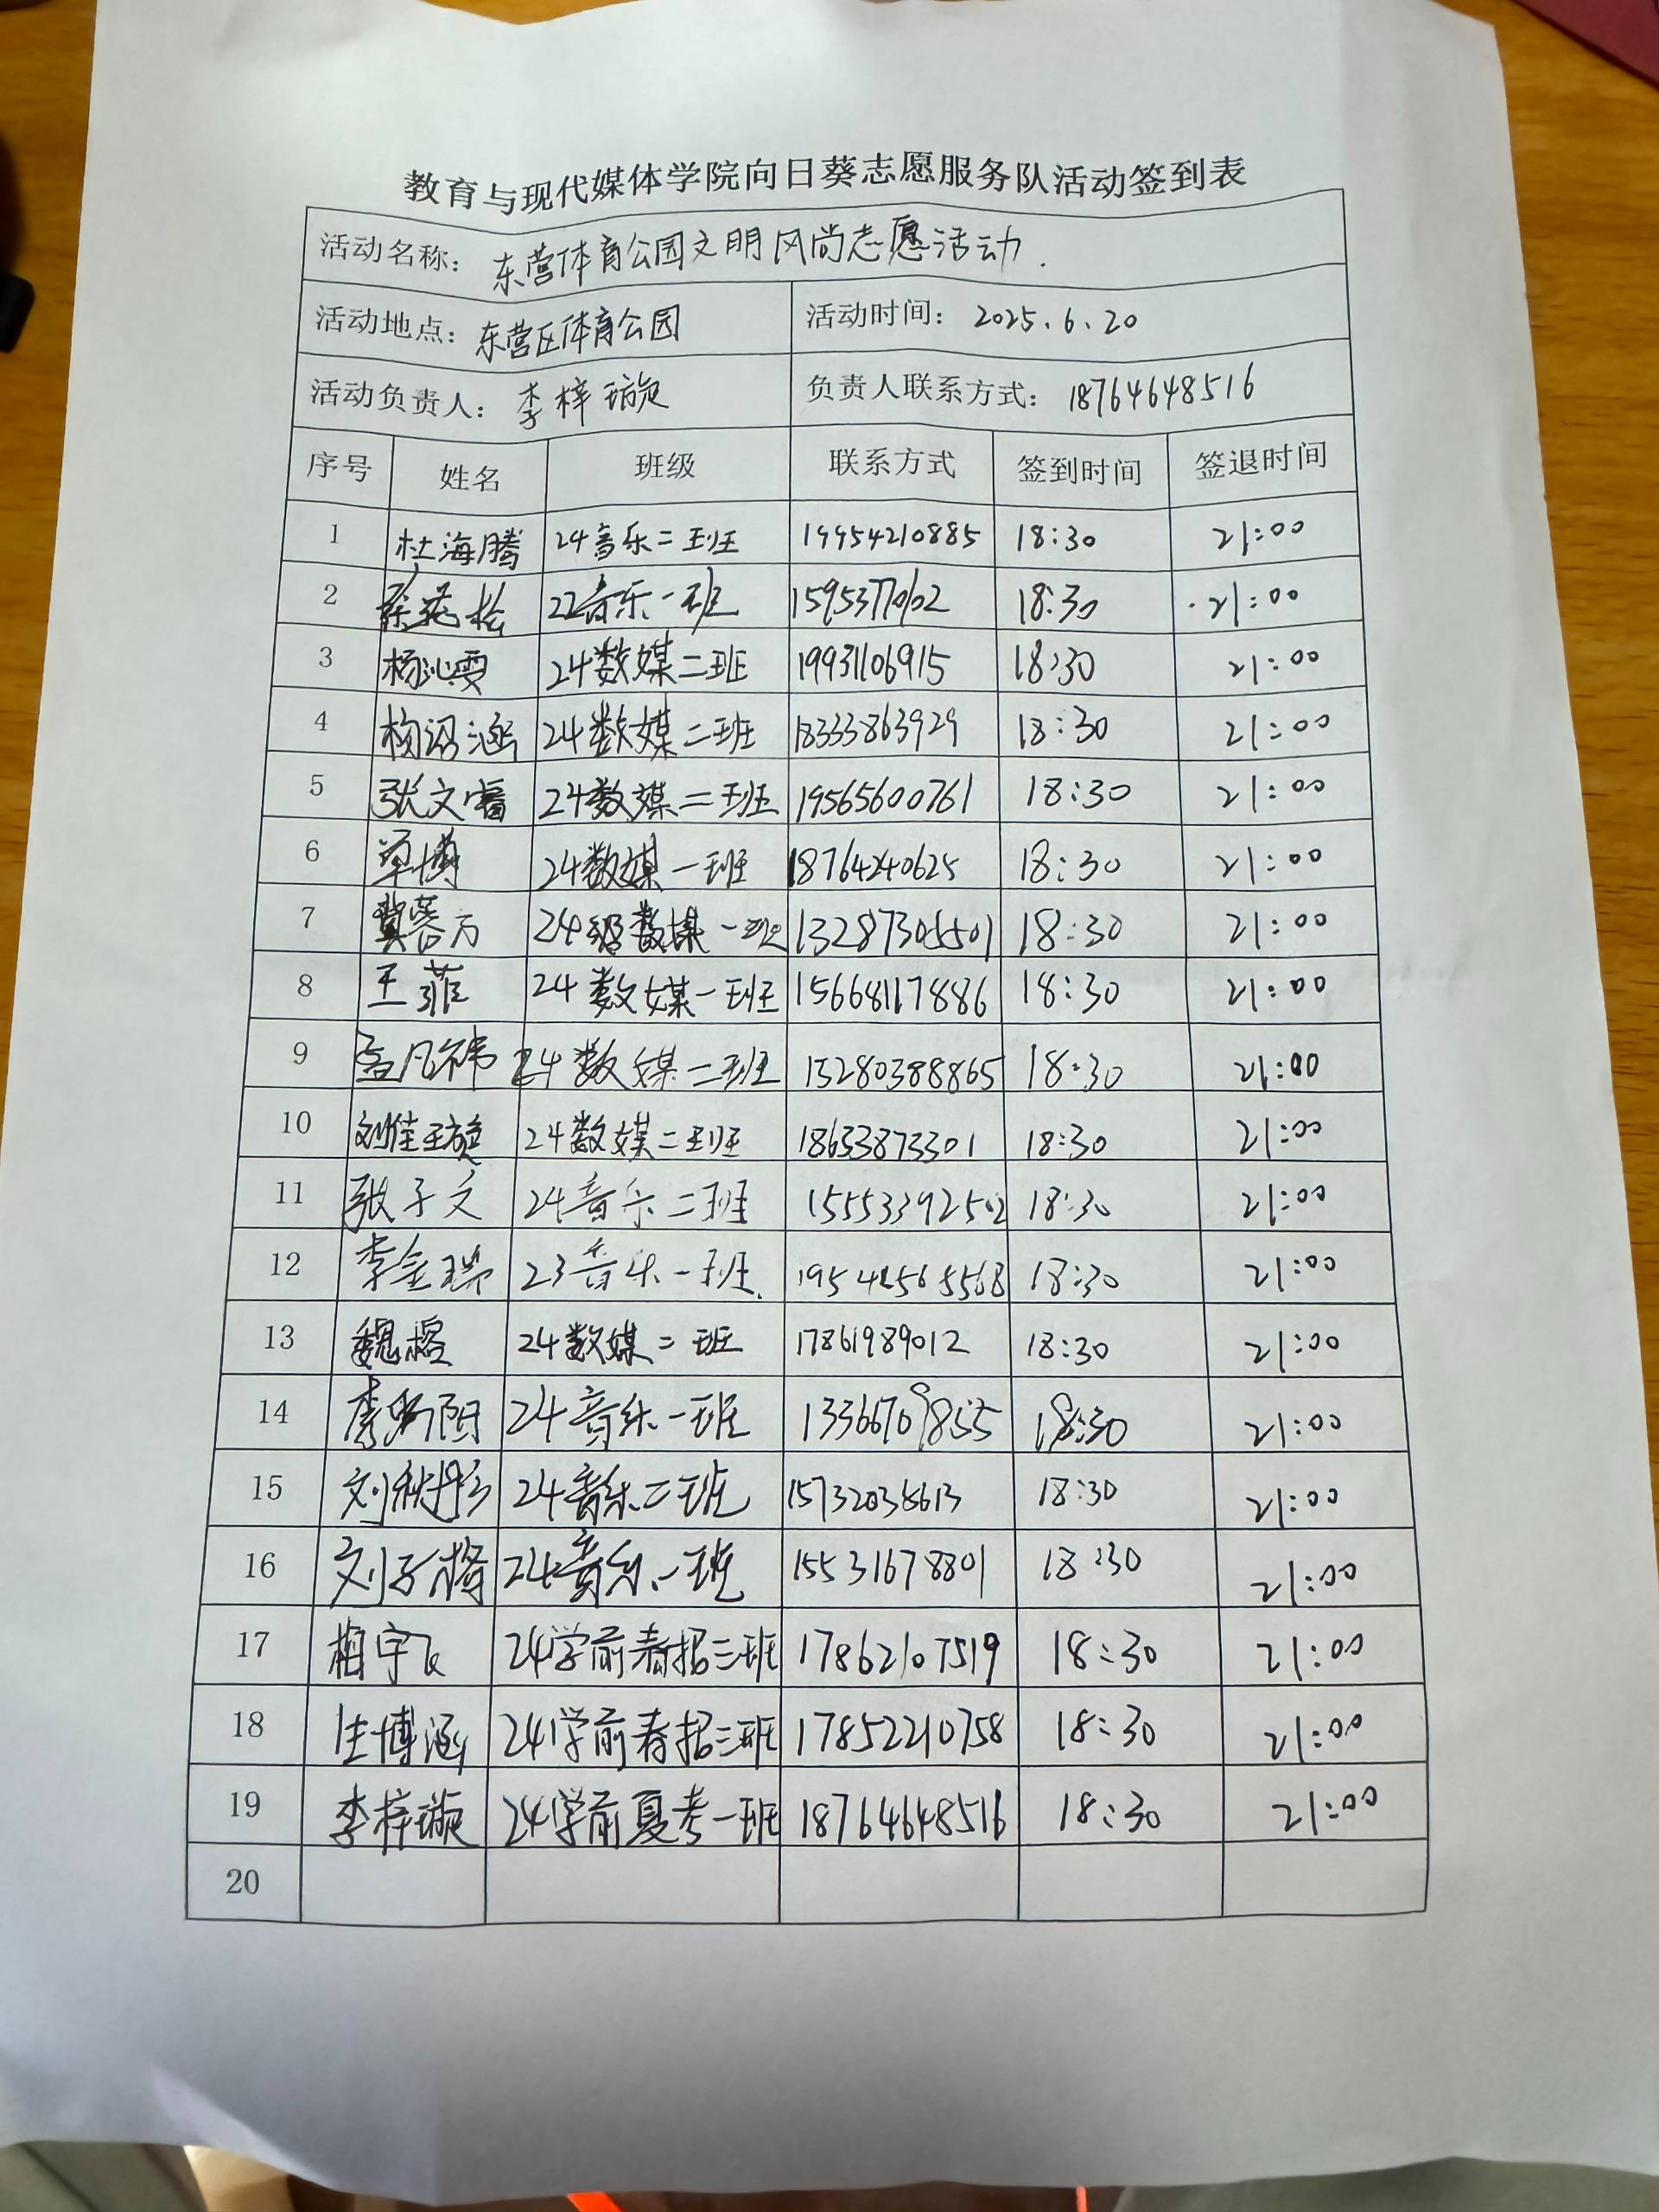 教育与现代媒体学院向日葵志愿服务队活动签到表
活动名称：东营体育公园文明风尚志愿活动.
活动地点：东营区体育公园 活动时间：2025.6.20
活动负责人：李梓璇 负责人联系方式：18764648516
序号 姓名 班级 联系方式 签到时间 签退时间
1 杜海腾 24音乐二班 19954210885 18:30 21:00
2 22音乐一班 18:30 21:00
3 杨沁雯 24数媒二班 19931106915 18:30 21:00
4 24数媒二班 18333863929 18:30 21:00
5 张文睿 24数媒二班 19565600761 18:30 21:00
6 单博 24数媒一班 18764240625 18:30 21:00
7 冀蓉方 24级数媒一班 13287305501 18:30 21:00
8 王菲 24数媒一班 15668117886 18:30 21:00
9 孟凡祎 24数媒二班 15280388865 18:30 21:00
10 刘佳璇 24数媒二班 18653873301 18:30 21:00
11 张子文 24音乐二班 15553392502 18:30 21:00
12 李金瑞 23音乐一班. 18:30 21:00
13 魏榕 24数媒二班 17861989012 18:30 21:00
14 24音乐一班 13366709855 18:30 21:00
15 刘秋彤 24音乐二班 18:30 21:00
16 24音乐一班 15531678801 18:30 21:00
17 相宇飞 24学前春招三班 17862107519 18:30 21:00
18 庄博涵 24学前春招三班 17852210758 18:30 21:00
19 李梓璇 24学前夏考一班 18764648516 18:30 21:00
20